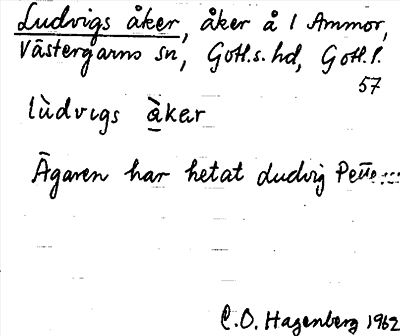 Ludvigs åker, åker å 1 Ammor,
Västergarns sn, Gotl.s. hd, Gotl. l.
57
lùdvɩgs å̀kar
Ägaren har hetat Ludvig
C.O. Hagenberg 1962